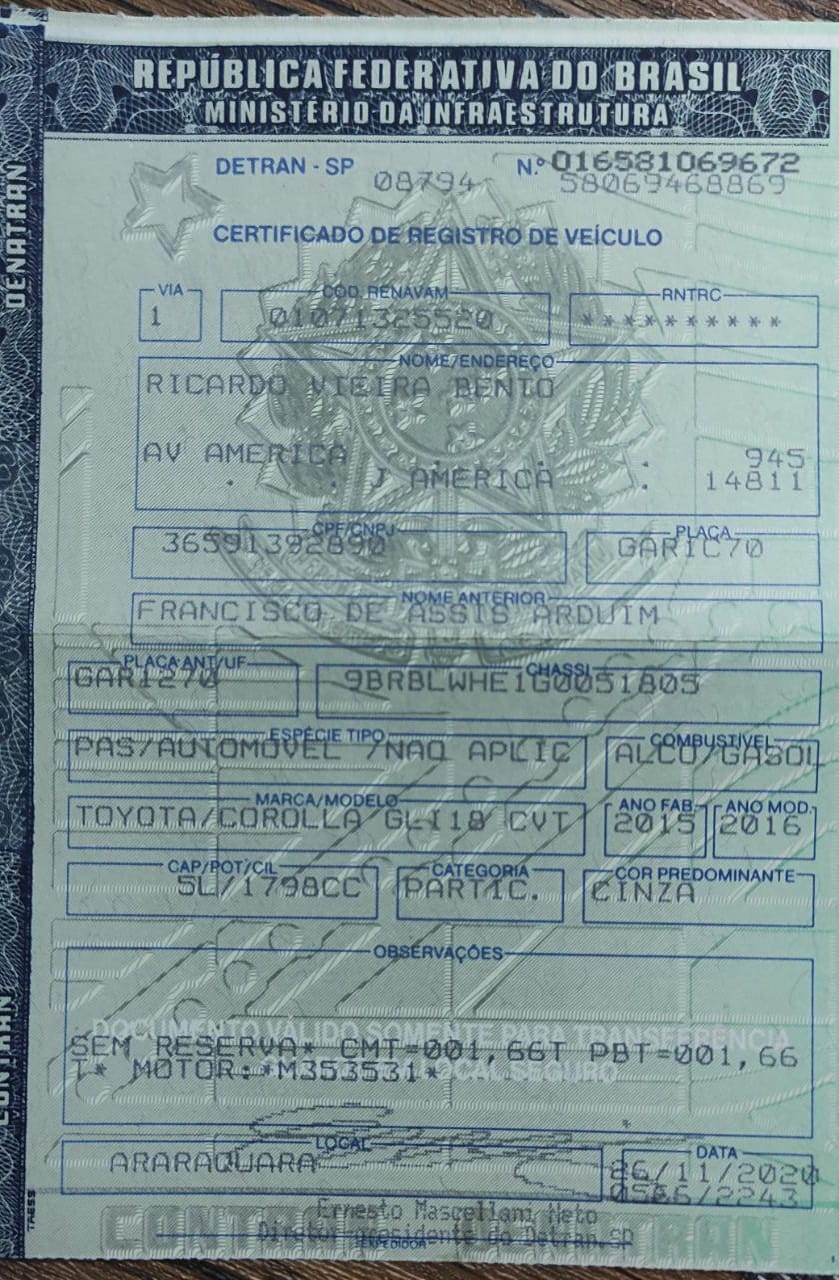 REPÚBLICA FEDERATIVA DO BRASIL
MINISTÉRIO DA INFRAESTRUTURA
DENATRAN
DETRAN - SP
08794
N.º 016581069672
58069468869
CERTIFICADO DE REGISTRO DE VEÍCULO
VIA
1
CÓD. RENAVAM
01071325520
RNTRC
**********
NOME/ENDEREÇO
RICARDO VIEIRA BENTO
AV AMERICA 945
. : J AMERICA : 14811
CPF/CNPJ
36591392890
PLACA
GAR1C70
NOME ANTERIOR
FRANCISCO DE ASSIS ARDUIM
PLACA ANT/UF
GAR1270
CHASSI
9BRBLWHE1G0051805
ESPÉCIE TIPO
PAS/AUTOMOVEL /NAO APLIC
COMBUSTÍVEL
ALCO/GASOL
MARCA/MODELO
TOYOTA/COROLLA GLI18 CVT
ANO FAB.
2015
ANO MOD.
2016
CAP/POT/CIL
5L/1798CC
CATEGORIA
PARTIC.
COR PREDOMINANTE
CINZA
OBSERVAÇÕES
DOCUMENTO VÁLIDO SOMENTE PARA TRANSFERÊNCIA
SEM RESERVA* CMT=001,66T PBT=001,66
T* MOTOR:*M353531*
LOCAL SEGURO
CONTRAN
LOCAL
ARARAQUARA
DATA
26/11/2020
Ernesto Mascellani Neto
Diretor presidente do Detran.SP
EXPEDIDOR
CONTRAN